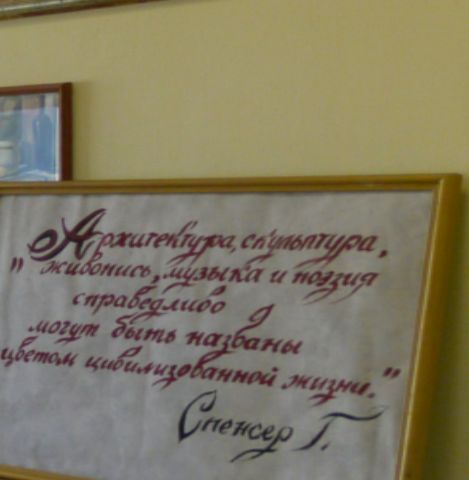 „Архитектура, скульптура,
живопись, музыка и поэзия
справедливо
могут быть названы
цветом цивилизованной жизни."
Спенсер Г.